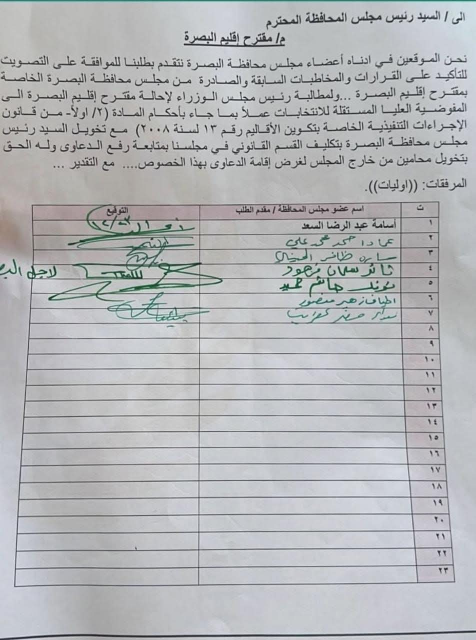 الى / السيد رئيس مجلس المحافظة المحترم
م/ مقترح إقليم البصرة
نحن الموقعين في ادناه أعضاء مجلس محافظة البصرة نتقدم بطلبنا للموافقة على التصويت
للتأكيد على القرارات والمخاطبات السابقة والصادرة من مجلس محافظة البصرة الخاصة
بمقترح إقليم البصرة ...ولمطالبة رئيس مجلس الوزراء لإحالة مقترح إقليم البصرة الى
المفوضية العليا المستقلة للانتخابات عملاً بما جاء بأحكام المادة (٢/ اولاً- من قانون
الإجراءات التنفيذية الخاصة بتكوين الأقاليم رقم ١٣ لسنة ٢٠٠٨) مع تخويل السيد رئيس
مجلس محافظة البصرة بتكليف القسم القانوني في مجلسنا بمتابعة رفع الدعاوى وله الحق
بتخويل محامين من خارج المجلس لغرض إقامة الدعاوى بهذا الخصوص.... مع التقدير ...
المرفقات: ((اوليات)).
ت اسم عضو مجلس المحافظة / مقدم الطلب التوقيع
١ أسامة عبد الرضا السعد
٢ احمد محمد علي
٣
٤ ثائر سلمان
٥ هاشم
٦ زهير منصور
٧
٨
٩
١٠
١١
١٢
١٣
١٤
١٥
١٦
١٧
١٨
١٩
٢٠
٢١
٢٢
٢٣